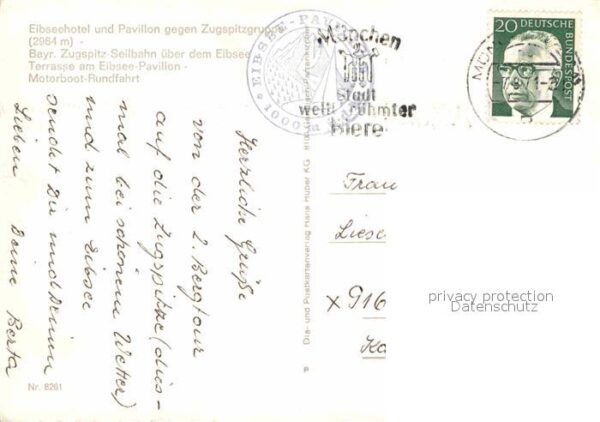 Eibseehotel und Pavillon gegen Zugspitzgruppe
(2964 m) -
Bayr. Zugspitz-Seilbahn über dem Eibsee
Terrasse am Eibsee-Pavillon -
Motorboot-Rundfahrt
EIBSEE-PAVILLON
1000 m
München
Stadt
weltberühmter
Biere
20 DEUTSCHE
BUNDESPOST
Herzliche Grüße
von der 2. Bergtour
auf die Zugspitze (dies-
mal bei schönem Wetter)
und zum Eibsee
sendet Dir und Deinen
Lieben Deine Berta
Dia- und Postkartenverlag Hans Huber KG
Frau
Liese
x 916
Ka
privacy protection
Datenschutz
Nr. 8261